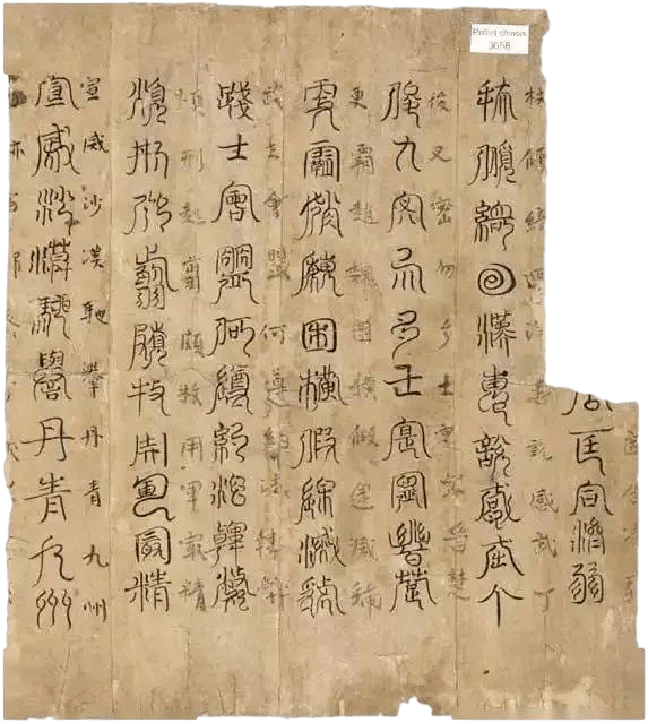 Pelliot chinois
3658
匡合濟弱
扶傾綺迴漢惠說感武丁
扶傾綺回漢惠說感武丁
俊乂密勿多士寔寧晉楚
俊乂密勿多士寔寧晉楚
更霸趙魏困橫假途滅虢
更霸趙魏困橫假途滅虢
踐土會盟何遵約法韓弊
踐土會盟何遵約法韓弊
煩刑起翦頗牧用軍最精
煩刑起翦頗牧用軍最精
宣威沙漠馳譽丹青九州
宣威沙漠馳譽丹青九州